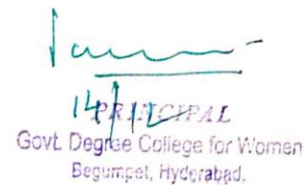 14/12
PRINCIPAL
Govt. Degree College for Women
Begumpet, Hyderabad.